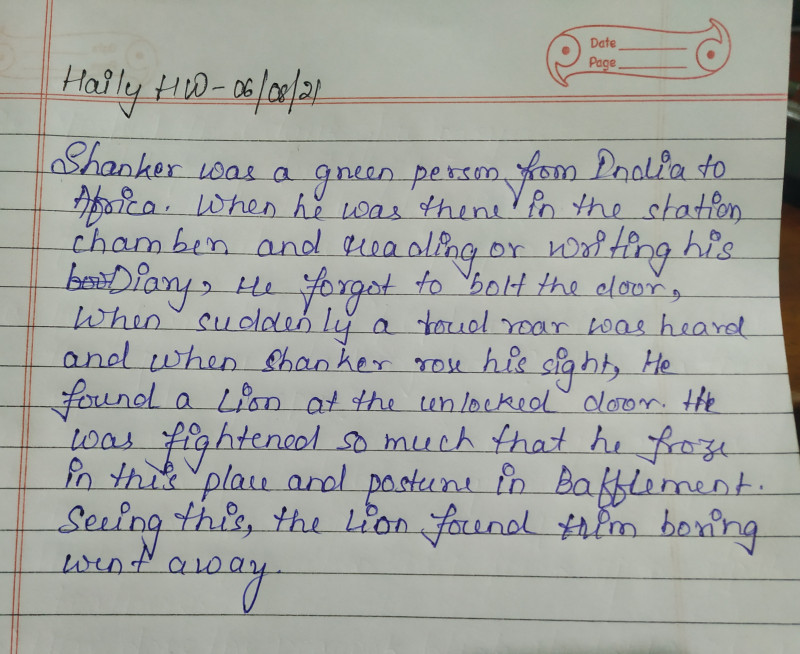 Date
Page
Haily HW - 06/08/21
Shanker was a green person from India to
Africa. When he was there in the station
chamber and reading or writing his
Diary, He forgot to bolt the door,
When suddenly a loud roar was heard
and when Shanker rose his sight, He
found a Lion at the unlocked door. He
was fightened so much that he froze
in this place and posture in Bafflement.
Seeing this, the Lion found him boring
went away.